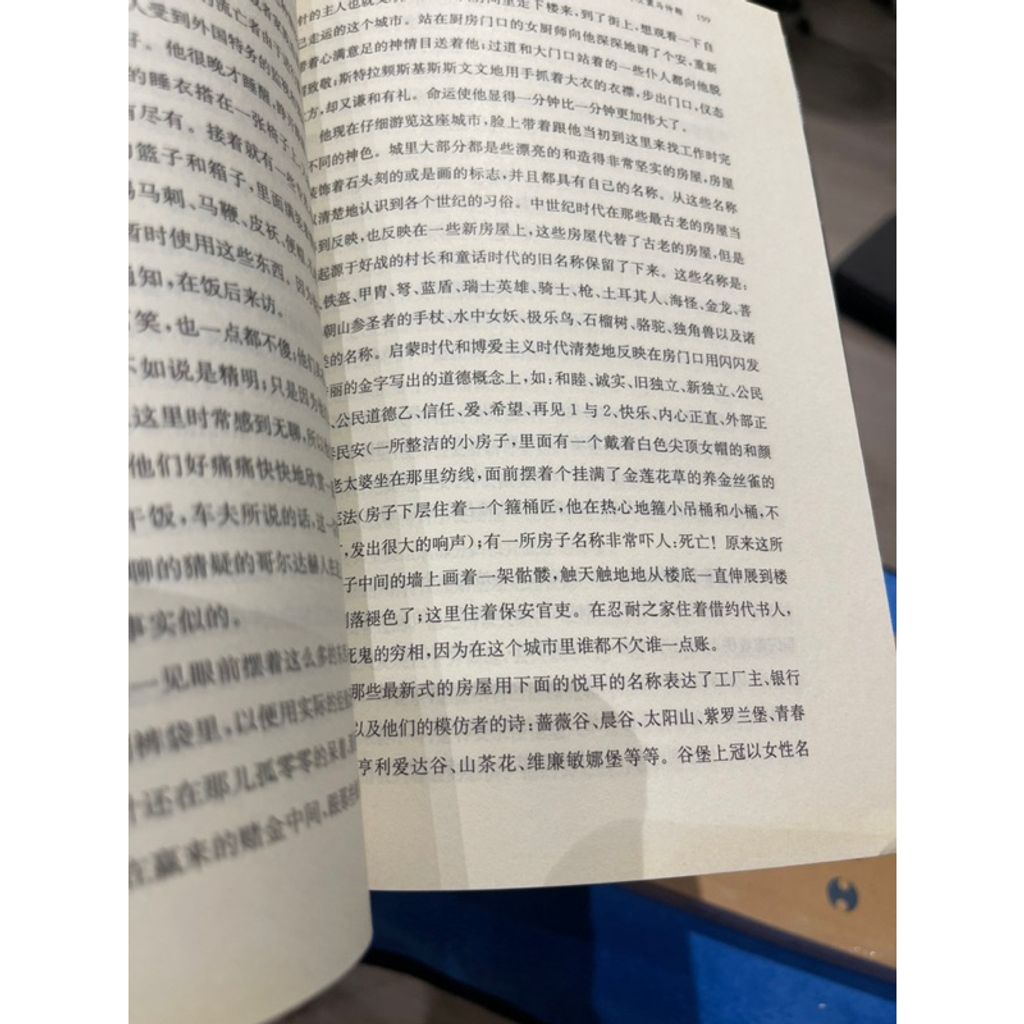 受到外国特务的监视
他很晚才睡醒
的睡衣搭在一张椅子上
有尽有。接着就有一些
篮子和箱子，里面
马刺、马鞭、皮袄、便帽
暂时使用这些东西。因为
通知，在饭后来访。
笑，也一点都不傻；他们
不如说是精明；只是因为
这里时常感到无聊，所以
他们好痛痛快快地欣赏
午饭，车夫所说的话，这一
聊的猜疑的哥尔达赫人
事实似的。
一见眼前摆着这么多的
裤袋里，以便用实际的
还在那儿孤零零的呆着
在赢来的赌金中间，
159
里走下楼来，到了街上，想观看一下自
己走运的这个城市。站在厨房门口的女厨师向他深深地请了个安，重新
带着心满意足的神情目送着他；过道和大门口站着的一些仆人都向他脱
帽致敬；斯特拉频斯基斯斯文文地用手抓着大衣的衣襟，步出门口，仪态
方，却又谦和有礼。命运使他显得一分钟比一分钟更加伟大了。
他现在仔细游览这座城市，脸上带着跟他当初到这里来找工作时完
不同的神色。城里大部分都是些漂亮的和造得非常坚实的房屋，房屋
装饰着石头刻的或是画的标志，并且都具有自己的名称。从这些名称
以清楚地认识到各个世纪的习俗。中世纪时代在那些最古老的房屋当
得到反映，也反映在一些新房屋上，这些房屋代替了古老的房屋，但是
起源于好战的村长和童话时代的旧名称保留了下来。这些名称是：
铁盔、甲胄、弩、蓝盾、瑞士英雄、骑士、枪、土耳其人、海怪、金龙、菩
朝山参圣者的手杖、水中女妖、极乐鸟、石榴树、骆驼、独角兽以及诸
的名称。启蒙时代和博爱主义时代清楚地反映在房门口用闪闪发
丽的金字写出的道德概念上，如：和睦、诚实、旧独立、新独立、公民
、公民道德乙、信任、爱、希望、再见1与2、快乐、内心正直、外部正
民安（一所整洁的小房子，里面有一个戴着白色尖顶女帽的和颜
老太婆坐在那里纺线，面前摆着个挂满了金莲花草的养金丝雀的
宪法（房子下层住着一个箍桶匠，他在热心地箍小吊桶和小桶，不
，发出很大的响声）；有一所房子名称非常吓人：死亡！原来这所
子中间的墙上画着一架骷髅，触天触地地从楼底一直伸展到楼
剥落褪色了；这里住着保安官吏。在忍耐之家住着借约代书人，
死鬼的穷相，因为在这个城市里谁都不欠谁一点账。
那些最新式的房屋用下面的悦耳的名称表达了工厂主、银行
以及他们的模仿者的诗：蔷薇谷、晨谷、太阳山、紫罗兰堡、青春
亨利爱达谷、山茶花、维廉敏娜堡等等。谷堡上冠以女性名